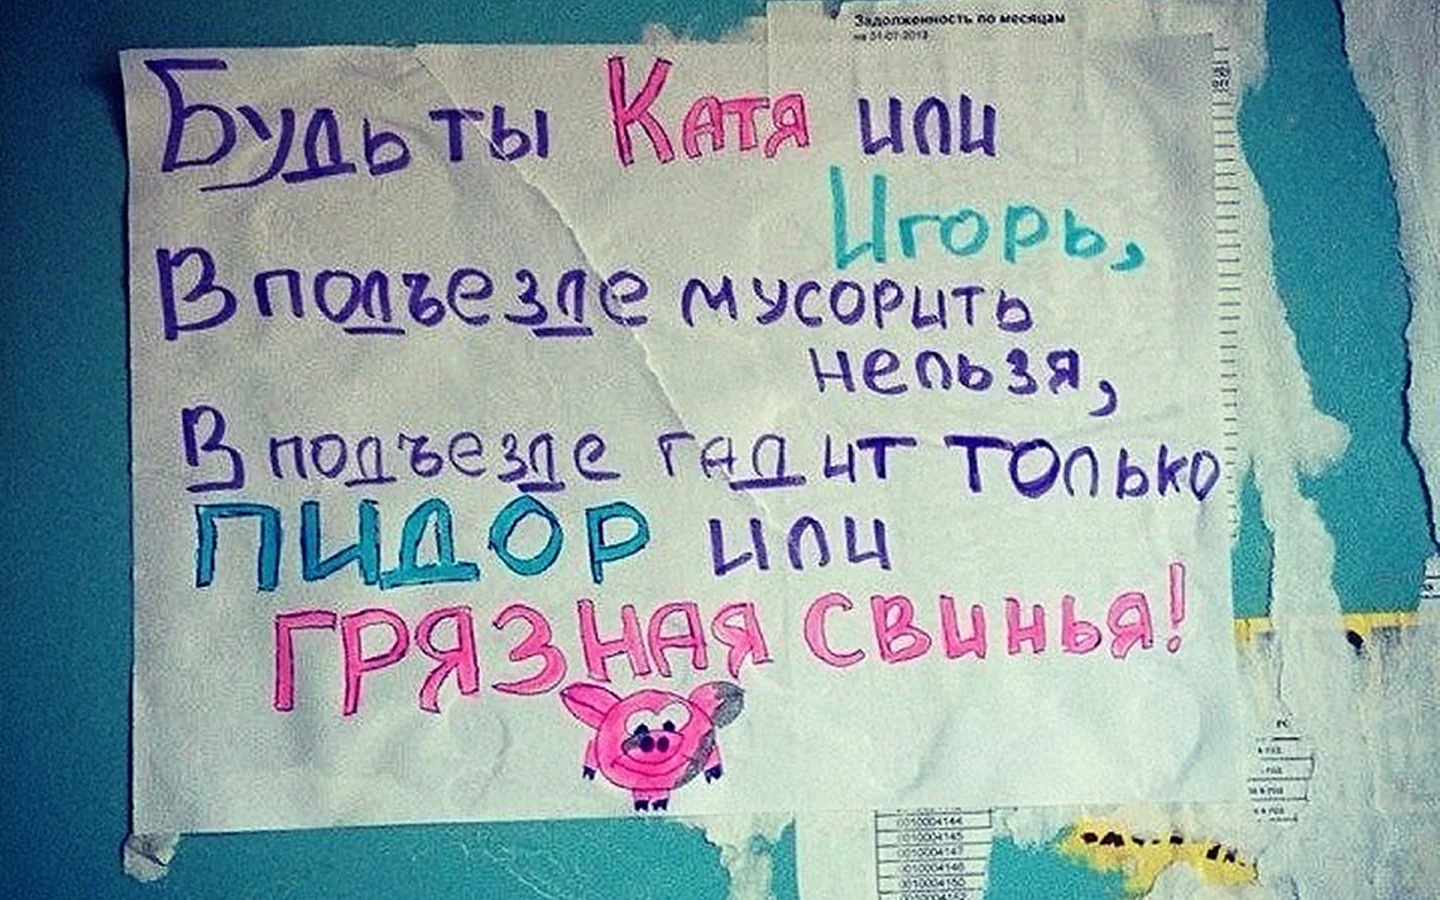 Задолженность по месяцам
на 31-07-2013
Будь ты Катя или
Игорь,
В подъезде мусорить
нельзя,
В подъезде гадит только
ПИДОР или
ГРЯЗНАЯ СВИНЬЯ!
РС
0010004144
0010004145
0010004147
0010004148
0010004150
0010004152